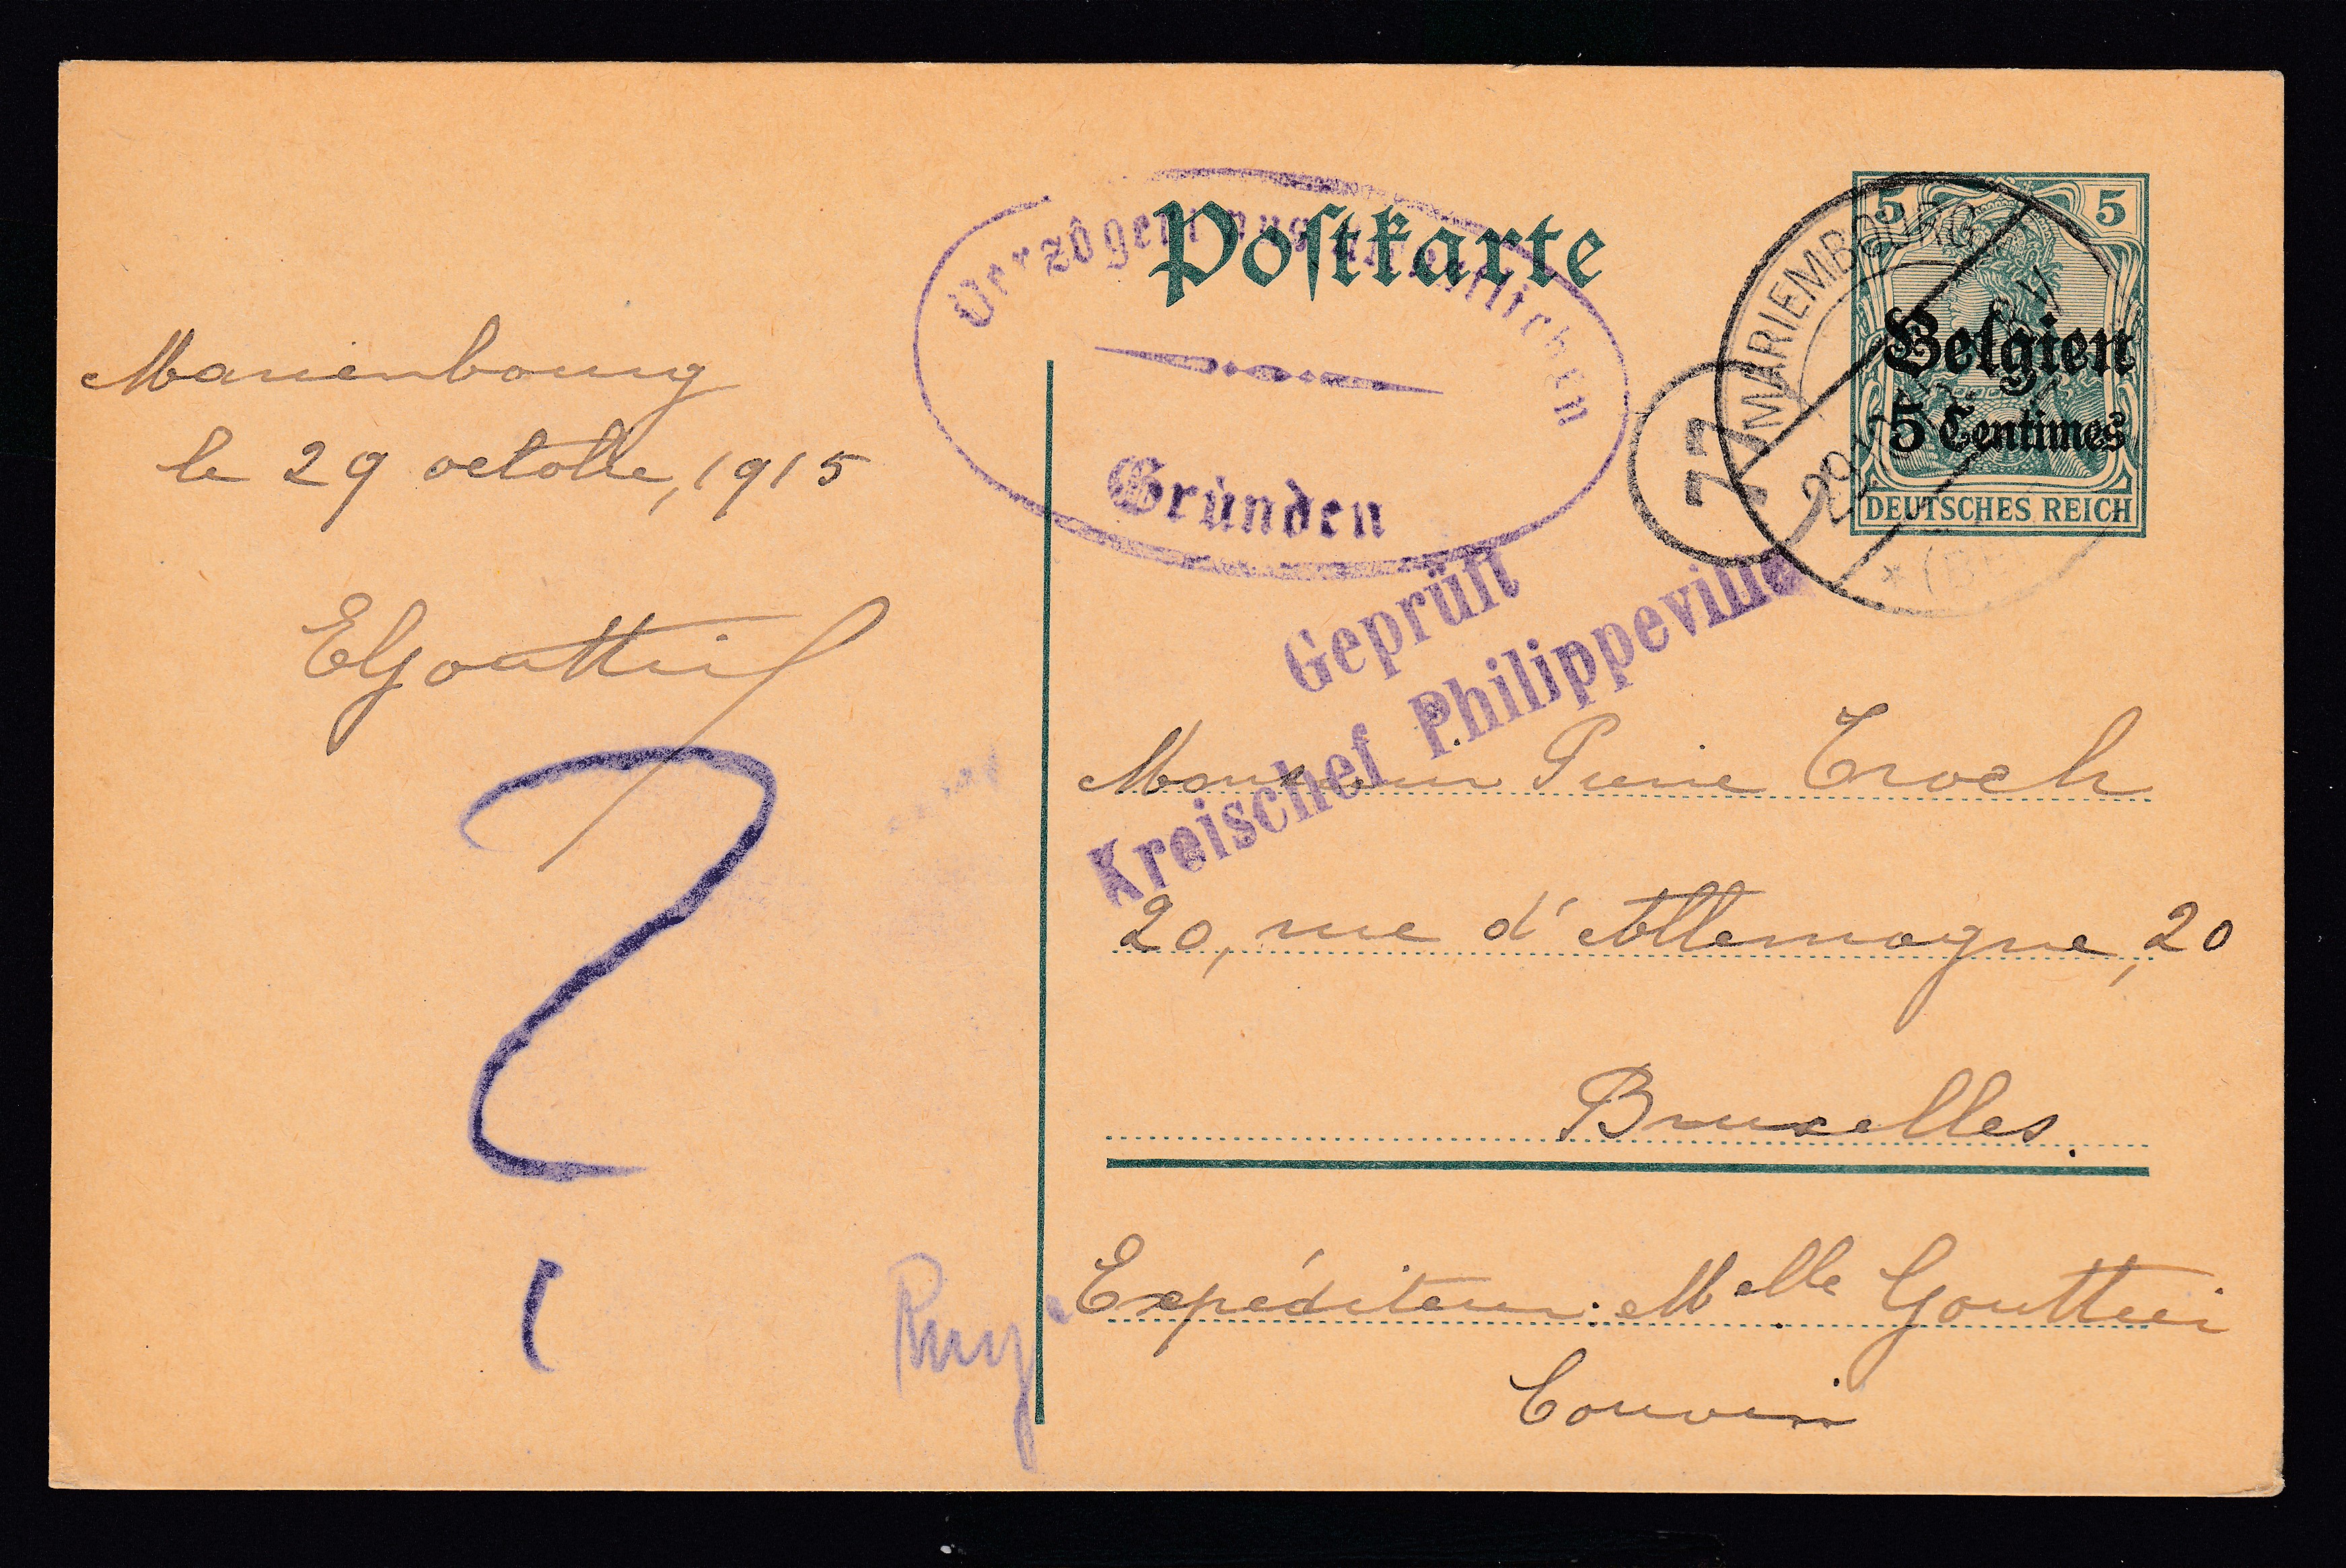 Postkarte
Verzögert aus dienstlichen
Gründen
5 5
Belgien
5 Centimes
DEUTSCHES REICH
MARIEMBOURG
29
77
Geprüft
Kreischef Philippeville
Mariembourg
le 29 octobre, 1915
EGouttier
Monsieur Pierre Croch
20, rue d'Allemagne, 20
Bruxelles.
Expéditeur: Melle Gouttier
Couvin